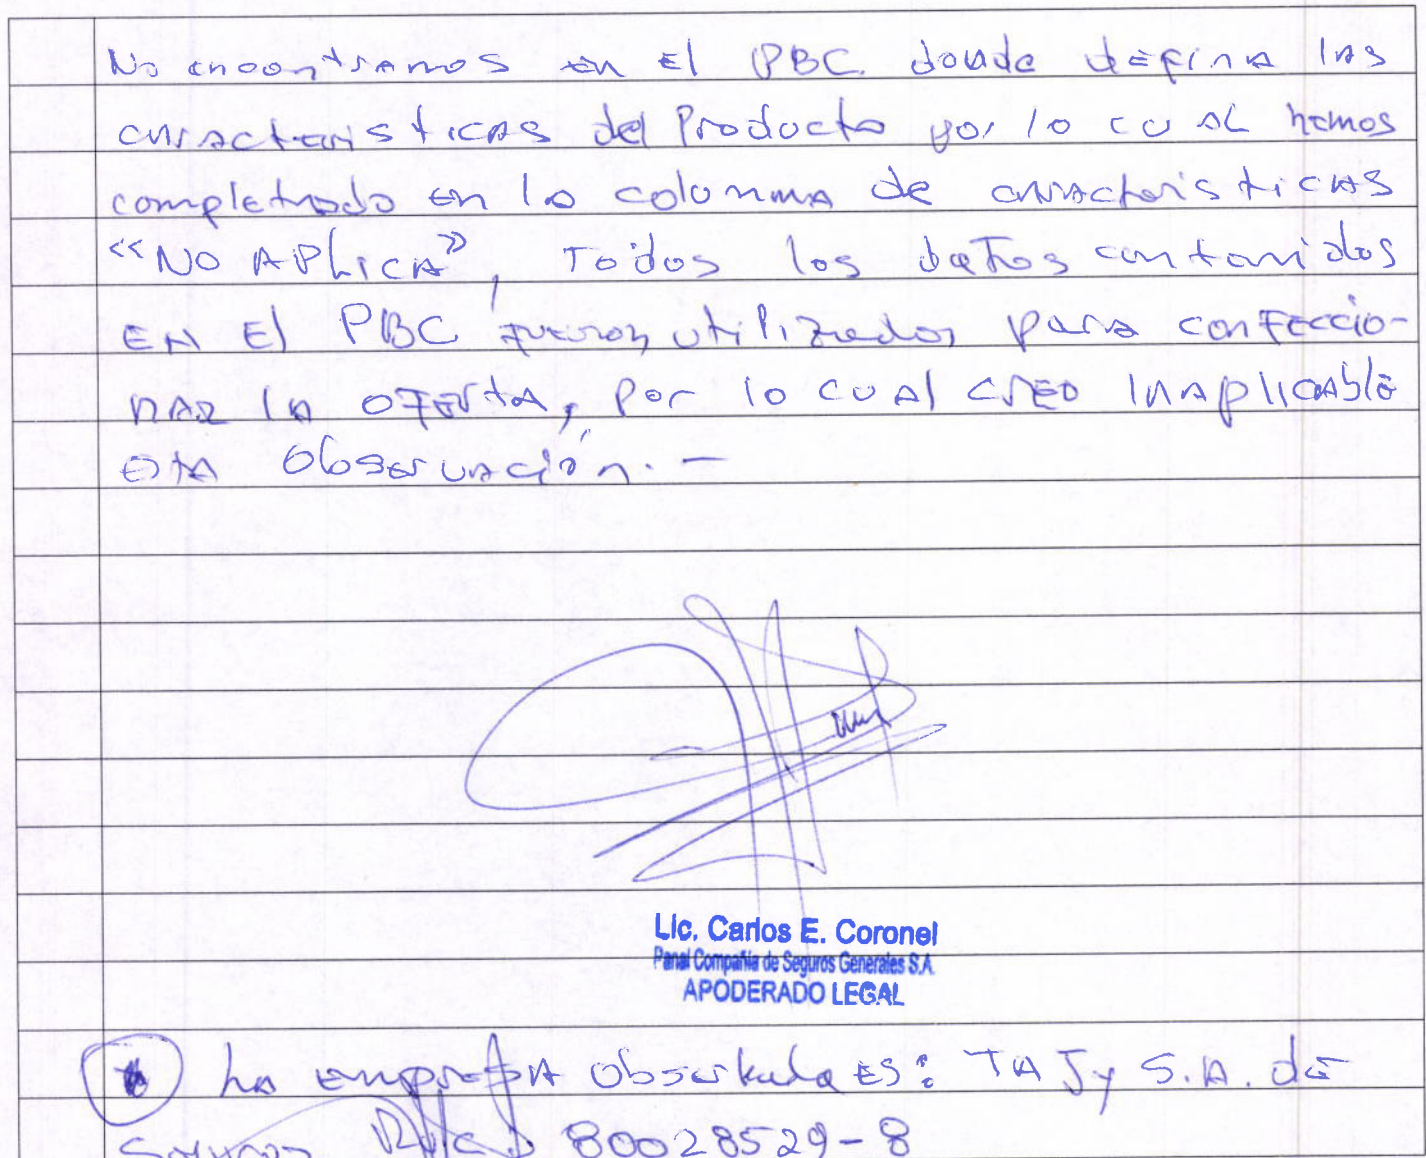 No encontramos en El PBC. donde defina las
caracteristicas del Producto por lo cual hemos
completado en la columna de caracteristicas
“NO APLICA”, Todos los datos contenidos
EN El PBC fueron utilizados para confeccio-
nar la oferta, por lo cual creo inaplicable
esta observación. -
Lic. Carlos E. Coronel
Panal Compañía de Seguros Generales S.A.
APODERADO LEGAL
La empresa observada es: TAJy S.A. de
Seguros 80028529-8